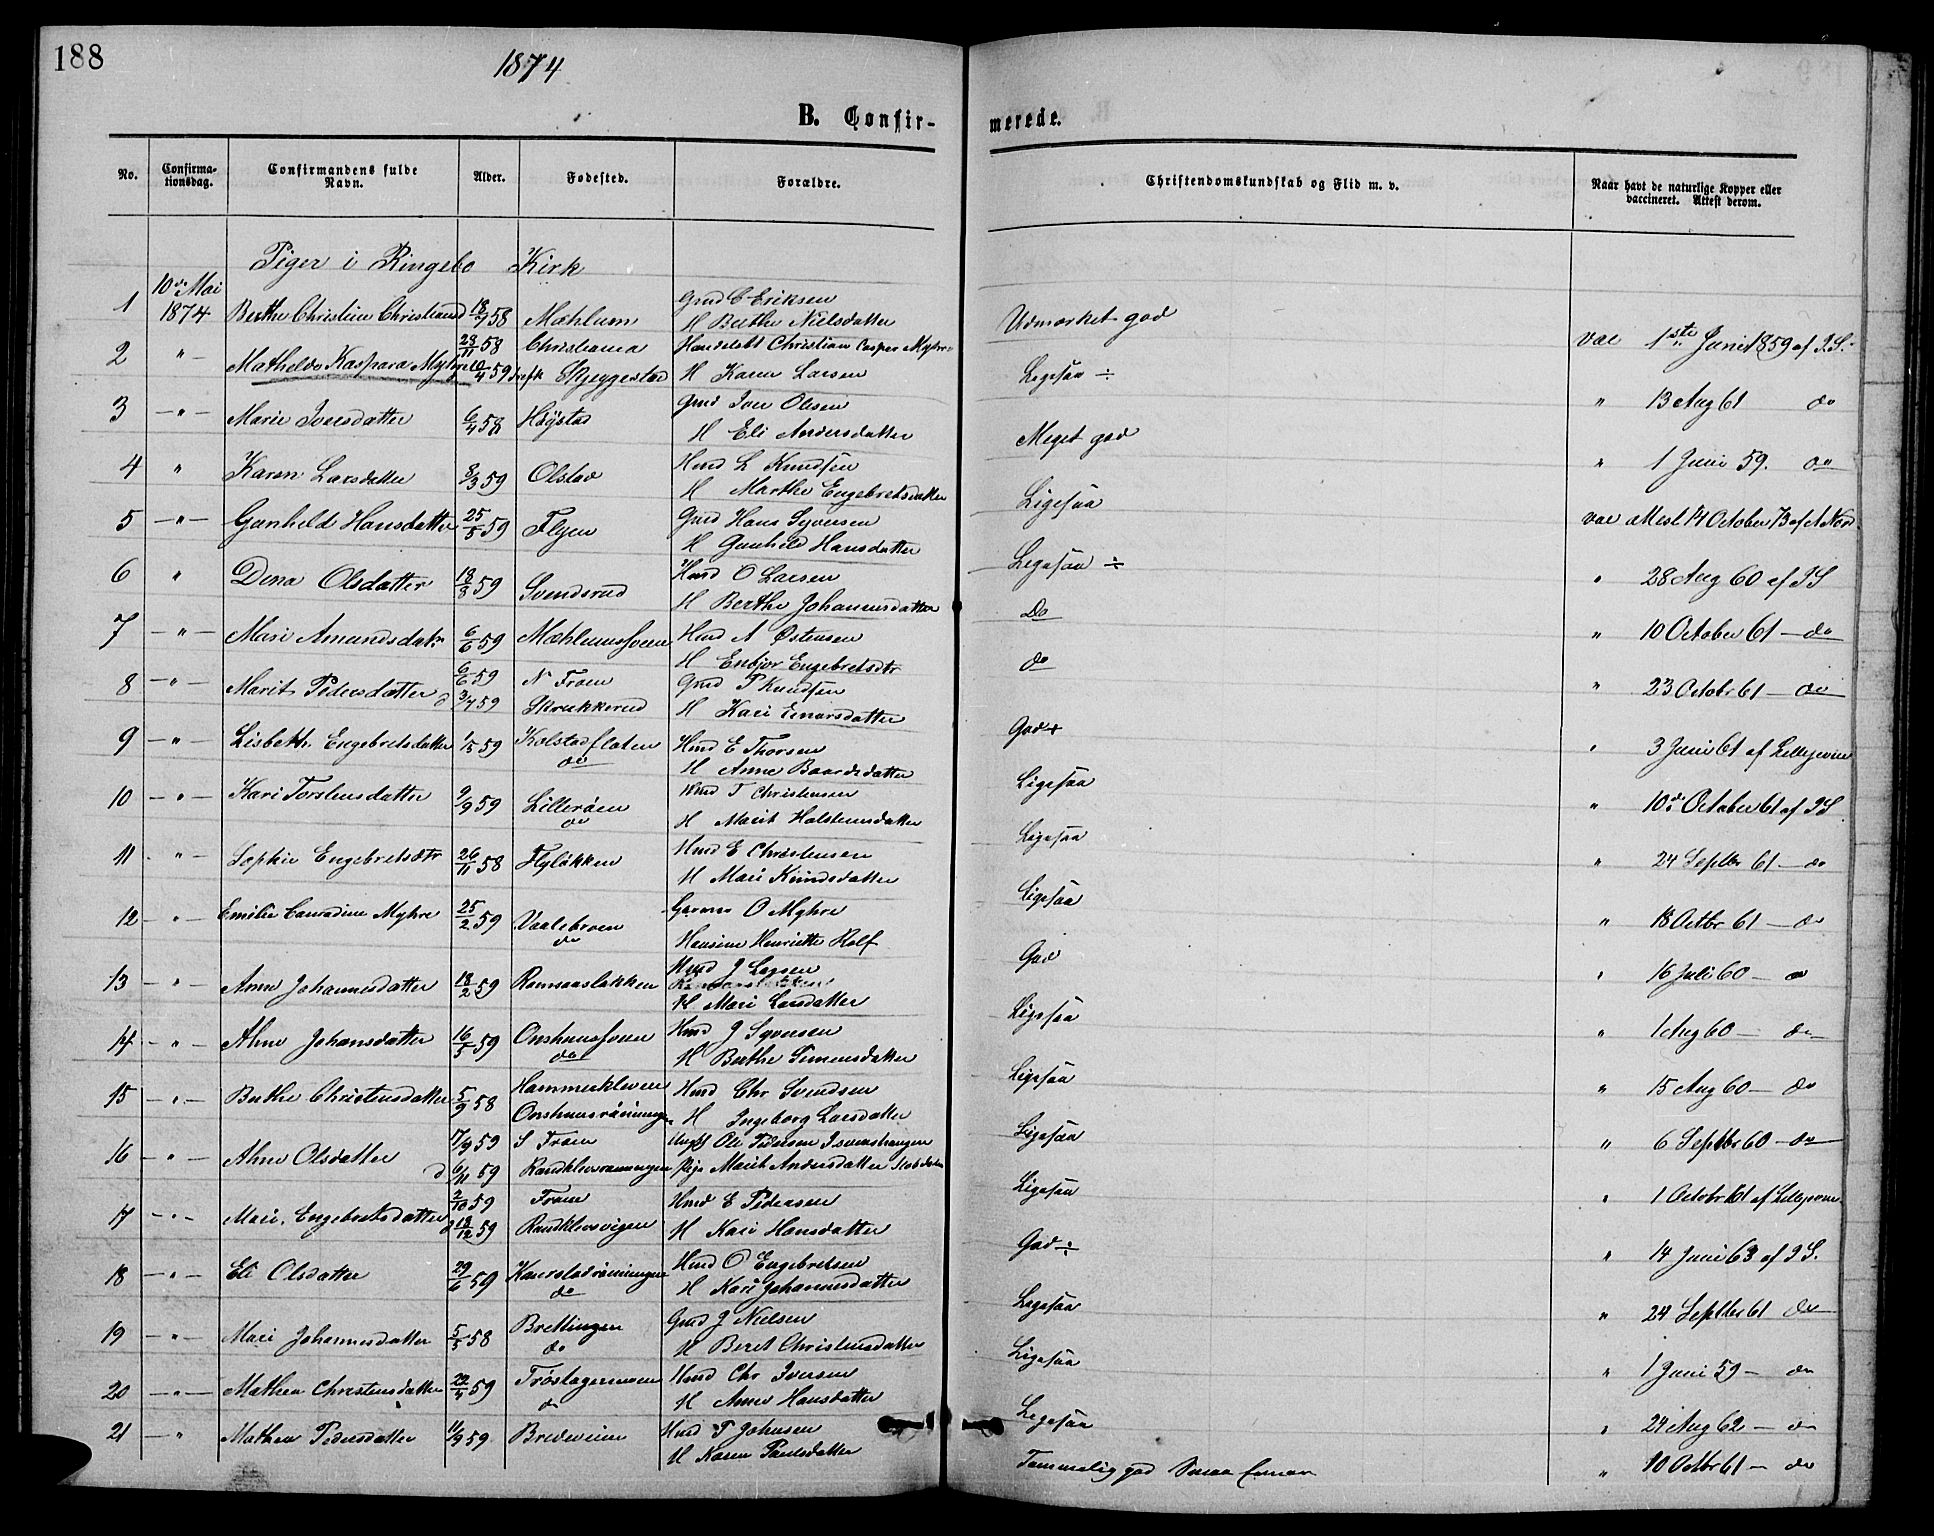 188
1874
B. Confir-
merede.
No.
Confirma-
tionsdag.
Confirmandens fulde
Navn.
Alder.
Fødested.
Forældre.
Christendomskundskab og Flid m. v.
Naar havt de naturlige Kopper eller
vaccineret. Attest derom.
Piger i Ringebo Kirk
10de Mai
1 1874 Berthe Christine Christiand 18/7 58 Mæhlum Gmd C Eriksen
H Berthe Nielsdatter
Udmærket god
vac 1ste Juni 1859 af I.S.
2 " Mathelde Kaspara Myhre 28/11 58 Christiania Christian Casper Myhre
10/4 59 Skjeggestad H Karen Larsen
Ligesaa ÷
" 13 Aug 61 do
3 " Marie Iversdatter 6/4 58 Høystad Gmd Iver Olsen
H Eli Andersdatter
Meget god
" 1 Juni 59. do
4 " Karen Larsdatter 8/3 59 Olstad Hmd L Knudsen
H Marthe Engebretsdatter
Ligesaa
vac Attest 14 October 73 af A Nord
5 " Gunhild Hansdatter 25/5 59 Flyen Gmd Hans Syversen
H Gunhild Hansdatter
Ligesaa ÷
" 28 Aug 60 af I S
6 " Dina Olsdatter 18/8 59 Svendsrud Hmd O Larsen
H Berthe Johannesdatter
Do
" 10 October 61 do
7 " Mari Amundsdatr 6/6 59 Mæhlumsveen Hmd A Østensen
H Enbjør Engebretsdtr
do
" 23 Octobr 61 do
8 " Marit Pedersdatter 6/6 59 N Froen Gmd P Knudsen
d 3/7 59 Skrukkerud H Kari Einarsdatter
God +
" 3 Juni 61 af
9 " Lisbeth Engebretsdatter 1/5 59 Kolstadfloten Hmd E Thorsen
do H Anne Baardsdatter
Ligesaa
" 10de October 61 af I S
10 " Kari Torstensdatter 9/9 59 Lillerøen Hmd T Christensen
do H Marit Holstensdatter
Ligesaa
" 24 Septbr 61 do
11 " Sophie Engebretsdtr 26/11 58 Flyløkken Hmd E Christensen
H Mari Knudsdatter
Ligesaa
" 18 Octbr 61 do
12 " Emilie Conradine Myhre 25/2 59 Vaalebroen Garver O Myhre
do Hansine Henriette Rolf
God
" 16 Juli 60 do
13 " Anne Johannesdatter 18/2 59 Romsaasløkken Hmd J Larsen
H Mari Larsdatter
Ligesaa
" 1 Aug 60 do
14 " Ahne Johansdatter 16/5 59 Onshuusveen Hmd J Syversen
do H Berthe Simensdatter
Ligesaa
" 15 Aug 60 do
15 " Berthe Christensdatter 5/9 58 Hammerkleven Hmd Chr Svendsen
Onshuusrønningen H Ingeborg Larsdatter
Ligesaa
" 6 Septbr 60 do
16 " Ahne Olsdatter 17/9 59 S Froen Ole Pedersen
d 6/11 59 Randklevrønningen Pige Marit Andersdatter
Ligesaa
" 1 Octobr 61 af
17 " Mari Engebretsdatter 2/10 59 Froen Hmd E Pedersen
d 18/12 59 Randklevsvigen H Kari Hansdatter
God ÷
" 14 Juni 63 af I S.
18 " Eli Olsdatter 29/6 59 Kaurstadrønningen Hmd O Engebretsen
do H Kari Johannesdatter
Ligesaa
" 24 Septbr 61 do
19 " Mari Johannesdatter 5/5 58 Brettingen Gmd J Nielsen
do H Beret Christensdatter
Ligesaa
" 1 Juni 59 do
20 " Mathea Christensdatter 22/4 59 Trøstagermoen Hmd Chr Iversen
do H Anne Hansdatter
Ligesaa
" 24 Aug 62 do
21 " Mathea Pedersdatter 11/9 59 Bredeveien Hmd P Johnsen
H Karen Paulsdatter
Temmelig god
" 10 Octbr 61 do